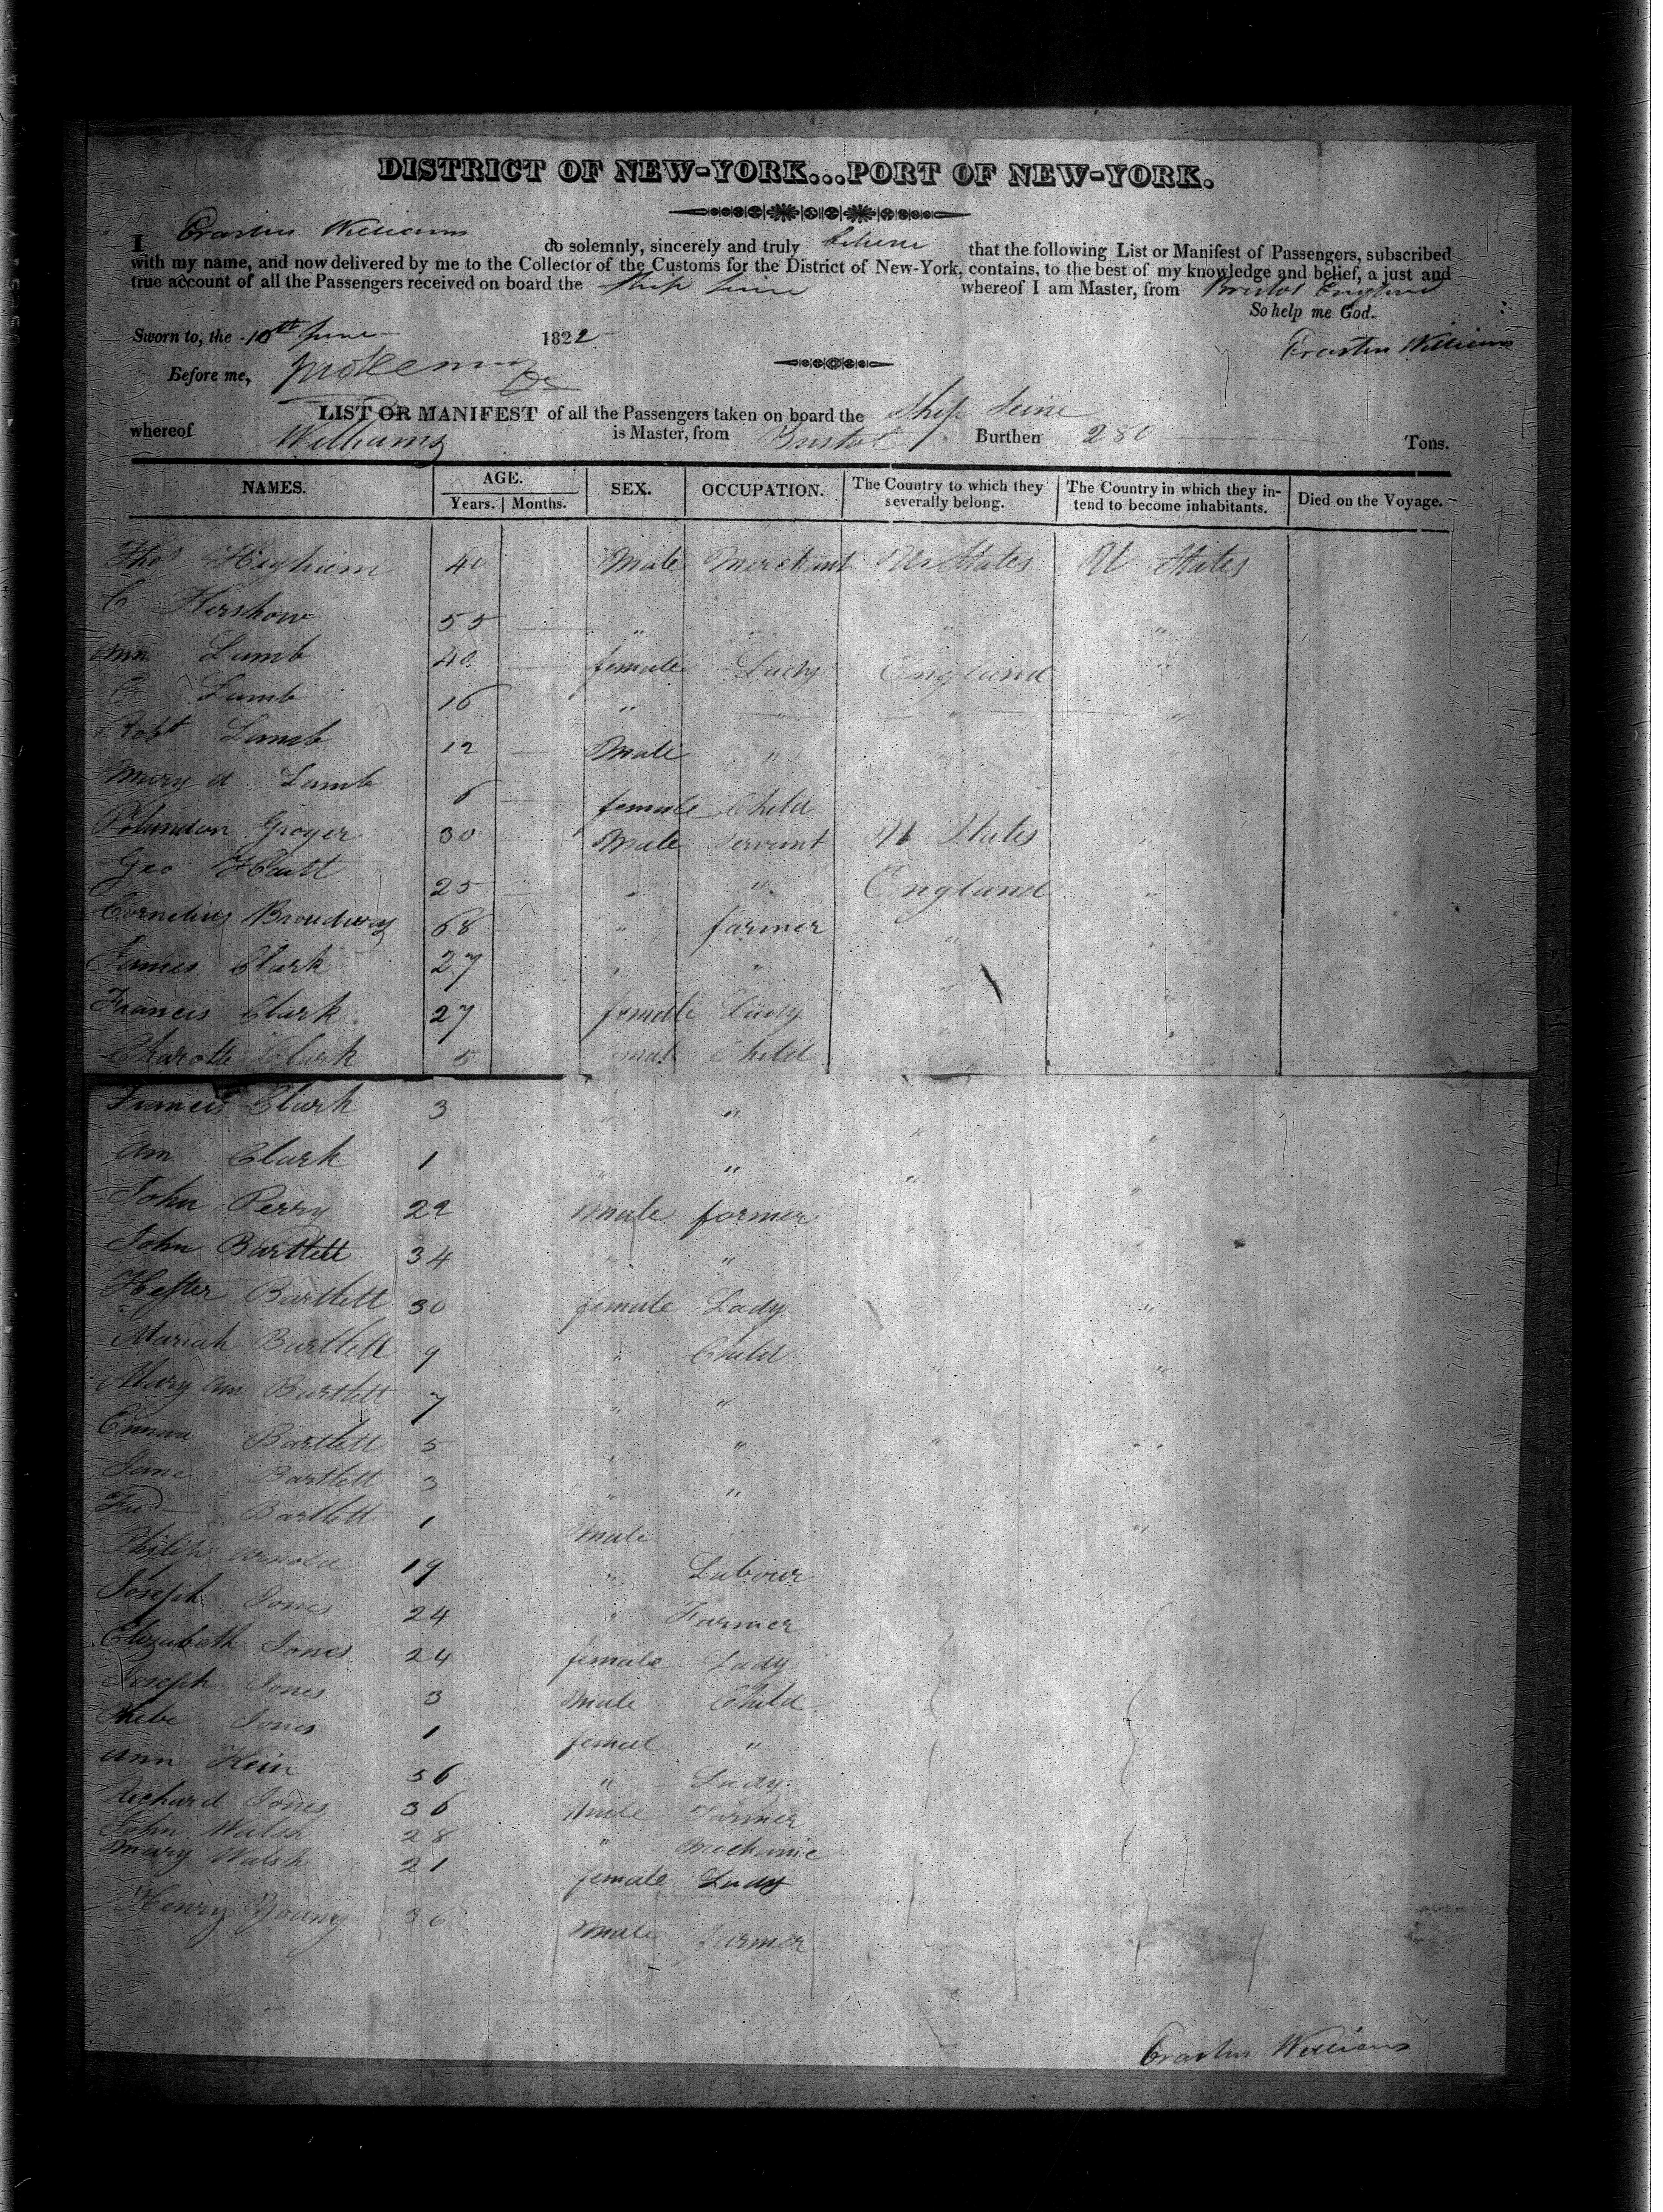 DISTRICT OF NEW-YORK...PORT OF NEW-YORK.
I Erastus Williams do solemnly, sincerely and truly believe that the following List or Manifest of Passengers, subscribed
with my name, and now delivered by me to the Collector of the Customs for the District of New-York, contains, to the best of my knowledge and belief, a just and
true account of all the Passengers received on board the Ship Seine whereof I am Master, from Bristol England
So help me God.
Sworn to, the 10th June 1822
Erastus Williams
Before me,
LIST OR MANIFEST of all the Passengers taken on board the Ship Seine
whereof Williams is Master, from Bristol Burthen 280 Tons.
NAMES. AGE. Years. Months. SEX. OCCUPATION. The Country to which they severally belong. The Country in which they intend to become inhabitants. Died on the Voyage.
Thos Higham 40 Male Merchant U. States U States
C Hershow 55 " " " "
Ann Lamb 40 female Lady England "
C Lamb 16 " " "
Robt Lamb 12 Male "
Mary A Lamb 6 female Child
Groyer 30 Male Servant U States "
Geo Hart 25 " " England "
Cornelius Broadway 68 " farmer "
James Clark 27 " " "
Francis Clark 27 female Lady "
Charotte Clark 5 Child "
Francis Clark 3 " " " "
Ann Clark 1 " " " "
John Perry 22 Male farmer "
John Bartlett 34 " "
Hester Bartlett 30 female Lady "
Mariah Bartlett 9 " Child " "
Mary Ann Bartlett 7 " "
Emma Bartlett 5 " " " "
Jane Bartlett 3 " "
Fred Bartlett 1 Male " " "
Philip Arnold 19 " Labour
Joseph Jones 24 " Farmer
Elizabeth Jones 24 female Lady
Joseph Jones 3 Male Child
Phebe Jones 1 femal "
Ann Hein 56 " Lady
Richard Jones 36 Male Farmer
John Walsh 28 " Mechanic
Mary Walsh 21 female Lady
Henry Young 36 Male Farmer
Erastus Williams